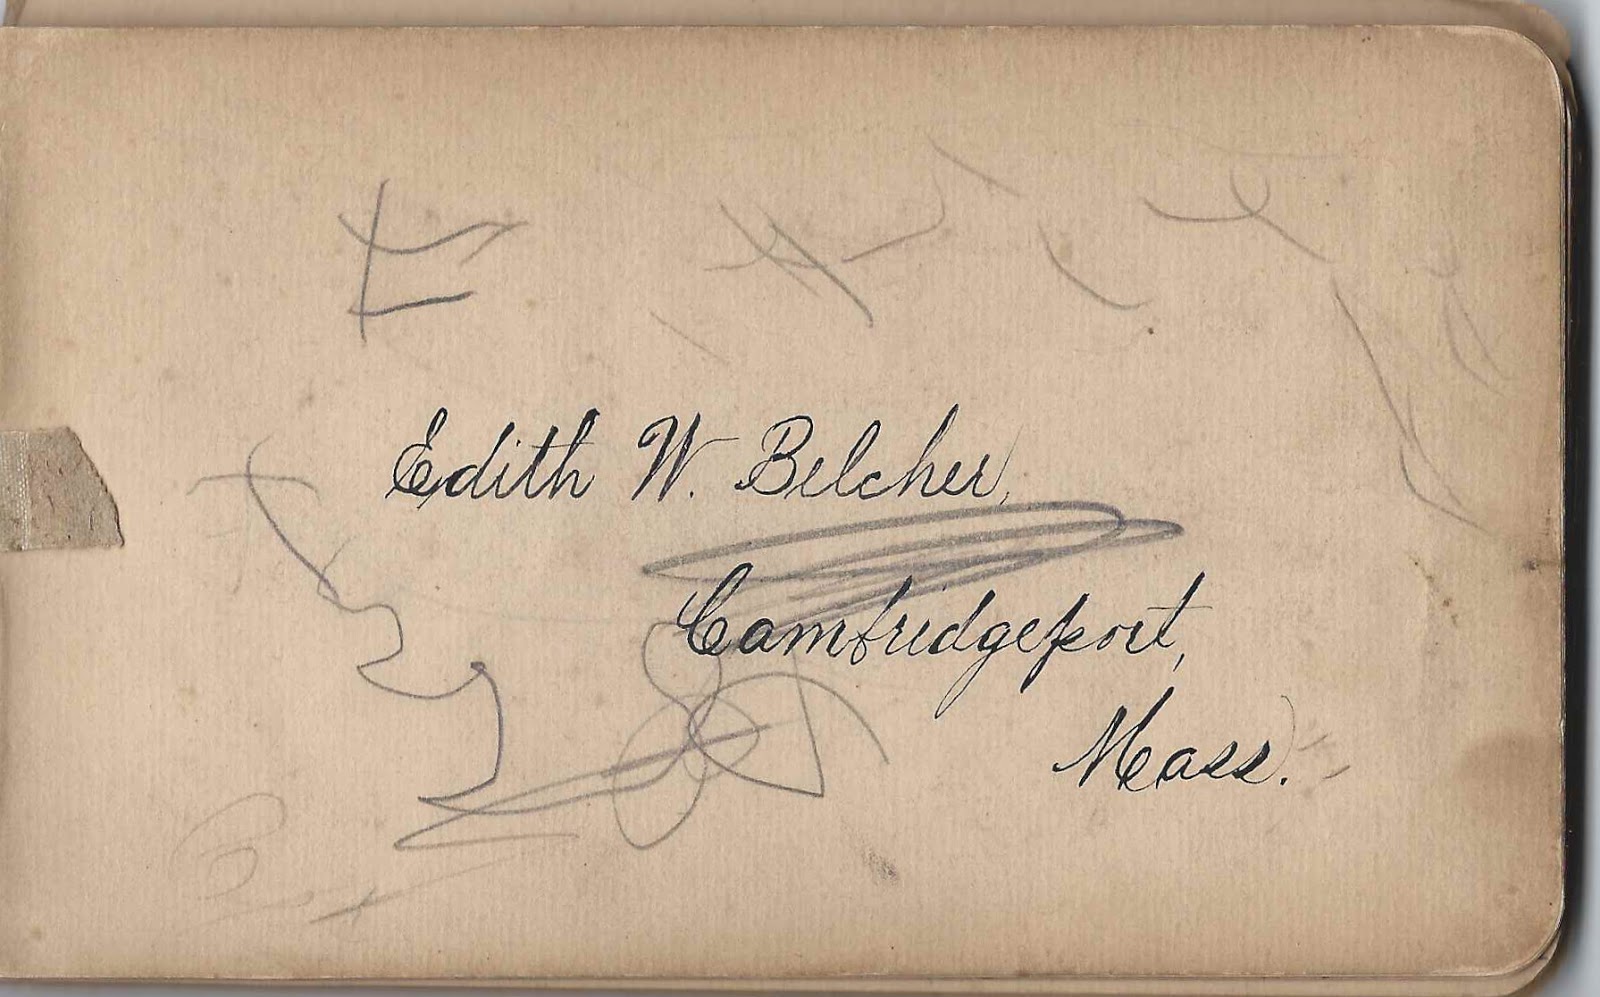 Edith W. Belcher,
Cambridgeport,
Mass.